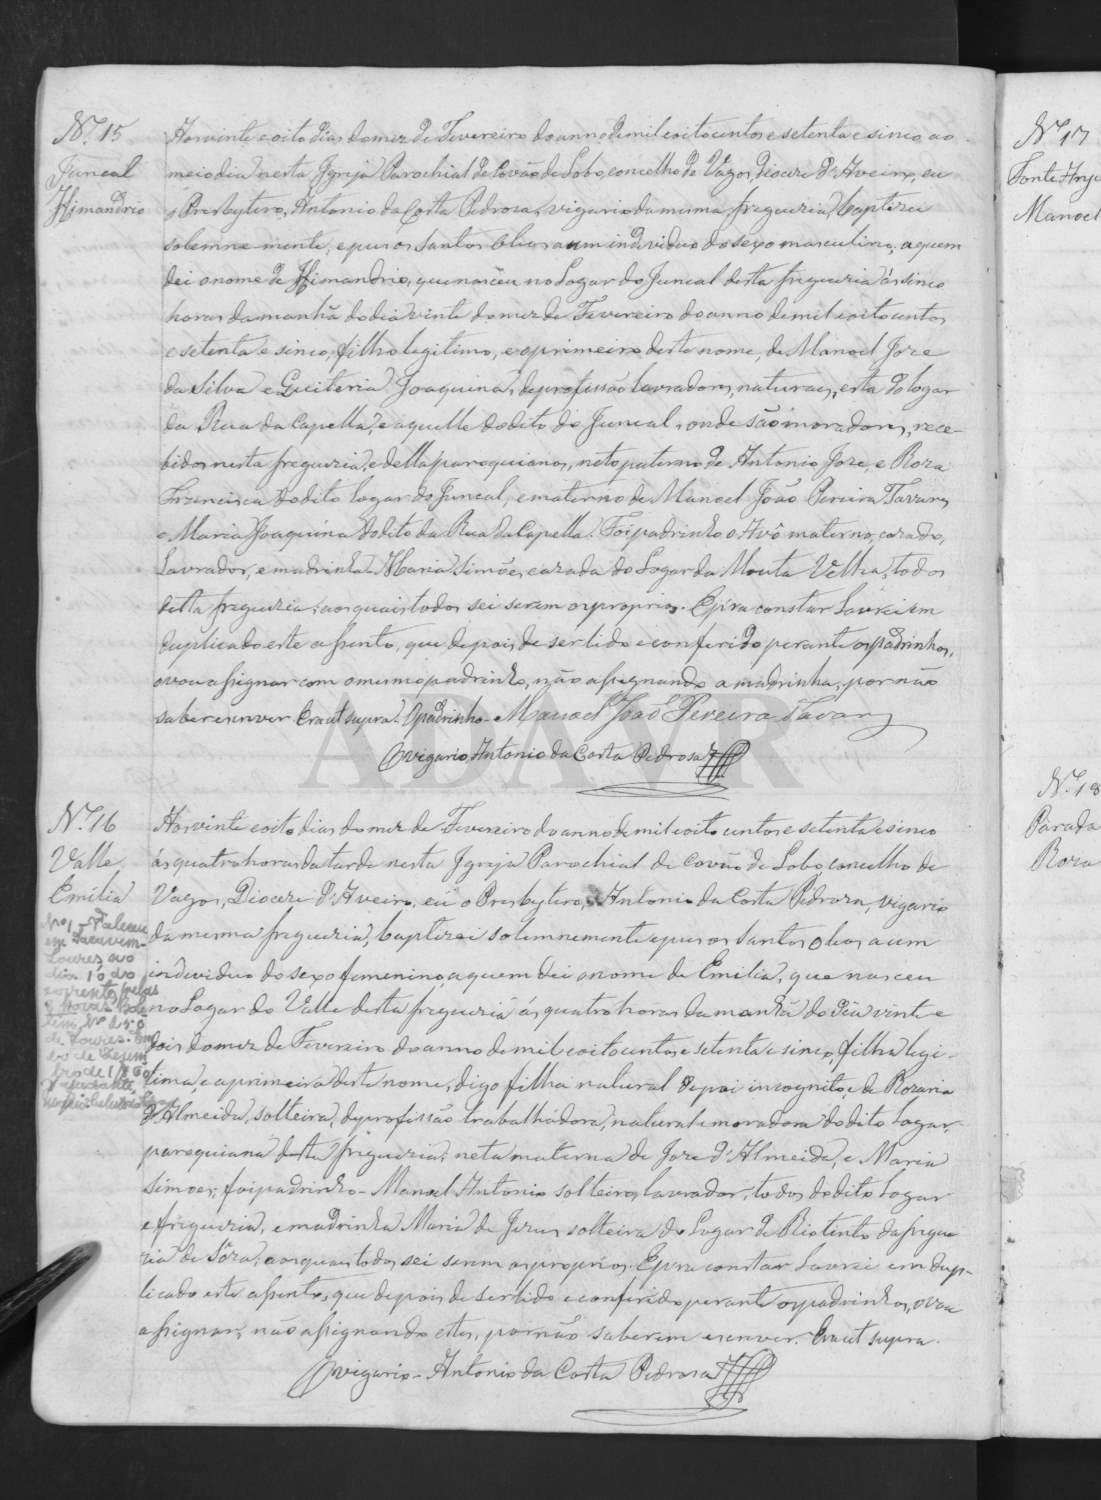 Nº 15
Juncal
Himandrio
Aos vinte e oito dias do mez de Fevereiro do anno de mil e oito centos e setenta e sinco ao
meio dia nesta Igreja Parochial de Covão de Lobo, concelho de Vagos, Diocere d'Aveiro, eu
o Presbytero, Antonio da Costa Pedrosa, vigario da mesma freguezia, baptizei
solemne mente, e puz os Santos Oleos a um individuo do sexo masculino, a quem
dei o nome de Himandrio, que nasceu no Logar do Juncal desta freguezia ás sinco
horas da manhã do dia vinte do mez de Fevereiro do anno de mil e oito centos
e setenta e sinco, filho legitimo, e o primeiro deste nome, de Manoel Joze
da Silva e Quiteria Joaquina, de profissão lavradores, naturaes, esta do logar
da Rua da Capella, e aquelle do dito do Juncal, onde são moradores, rece-
bidos nesta freguezia, e della paroquianos, neto paterno de Antonio Joze, e Roza
Francisca do dito logar do Juncal, e materno de Manoel João Pereira Tavares
e Maria Joaquina do dito da Rua da Capella. Foi padrinho o Avô materno, cazado,
Lavrador, e madrinha Maria Simões, cazada do Logar da Mouta Velha, todos
desta freguezia; aos quais todos sei serem os proprios. E p.ra constar Lavrei em
duplicado este assento, que depois de ser lido e conferido perante os padrinhos,
o vou assignar com o mesmo padrinho, não assignando a madrinha, por não
saber escrever. Era ut supra. O padrinho - Manoel João Pereira Tavares
O vigario Antonio da Costa Pedrosa
ADAVR
Nº 16
Valle
Emilia
Nº 1 - Faleceu
em Sacavem-
Loures no
dia 1º do
corrente pelas
horas Bole-
tem Nº 250
de Loures. Em
de Dezem
bro de 1960
O ajudante
Aos vinte e oito dias do mez de Fevereiro do anno de mil e oito centos e setenta e sinco
ás quatro horas da tarde nesta Igreja Parochial de Covão de Lobo concelho de
Vagos, Diocere d'Aveiro, eu o Presbytero, Antonio da Costa Pedroza, vigario
da mesma freguezia, baptizei solemnemente e puz os Santos Oleos a um
individuo do sexo femenino, a quem dei o nome de Emilia, que nasceu
no Logar do Valle desta freguezia ás quatro horas da manhã do dia vinte e
dois do mez de Fevereiro do anno de mil e oito centos e setenta e sinco, filha legi-
tima e a primeira deste nome, digo filha natural de pai incognito, e de Rozaria
d'Almeida, solteira, de profissão trabalhadora, natural e moradora do dito Logar,
paroquiana desta freguezia, neta materna de Joze d'Almeida, e Maria
Simões; foi padrinho - Manoel Antonio solteiro, lavrador, todos do dito Logar
e freguezia, e madrinha Maria de Jezus solteira do Logar de Rio tinto da fregue
zia de Sôza, aos quaes todos sei serem os proprios. E p.ra constar Lavrei em dup-
licado este assento, que depois de ser lido e conferido perante os padrinhos, o vou
assignar, não assignando estes, por não saberem escrever. Era ut supra.
O vigario - Antonio da Costa Pedrosa
Nº 17
Manoel
Nº 18
Parada
Roza